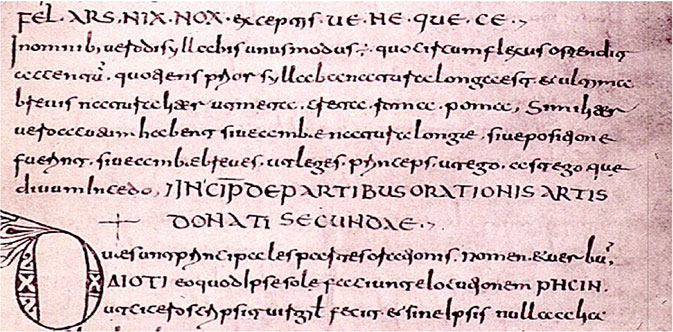 FEL. ARS. NIX. NOX. exceptis. UE. NE. QUE. CE.
In nominib; uero disyllabis unus modus; quo circumflexus ostendit
accentū. quotiens prior syllaba natura longa est. et ultima
breuis natura hær ut meta. creta. roma. poma; Simil hær
uero acuam habent siue ambe natura longae. siue positione
fuerint. siue ambe breues. ut leges. princeps. ut ego. ast ego que
diuum Incedo. INCIP DE PARTIBUS ORATIONIS ARTIS
DONATI SECUNDAE.
Quae sunt principales partes orationis. nomen. & uerbū.
DIOTI eo quod Ipse solae faciunt elocutionem PHCIN.
ut cicero scripsit uirgiƚ fecit et sine Ipsis nulla alia